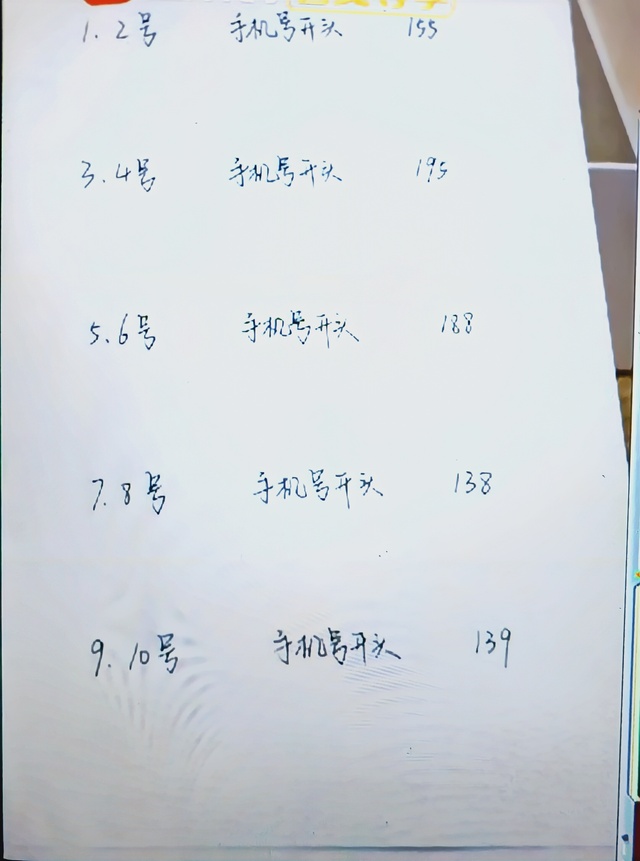 1. 2号 手机号开头 155
3. 4号 手机号开头 195
5. 6号 手机号开头 188
7. 8号 手机号开头 138
9. 10号 手机号开头 139